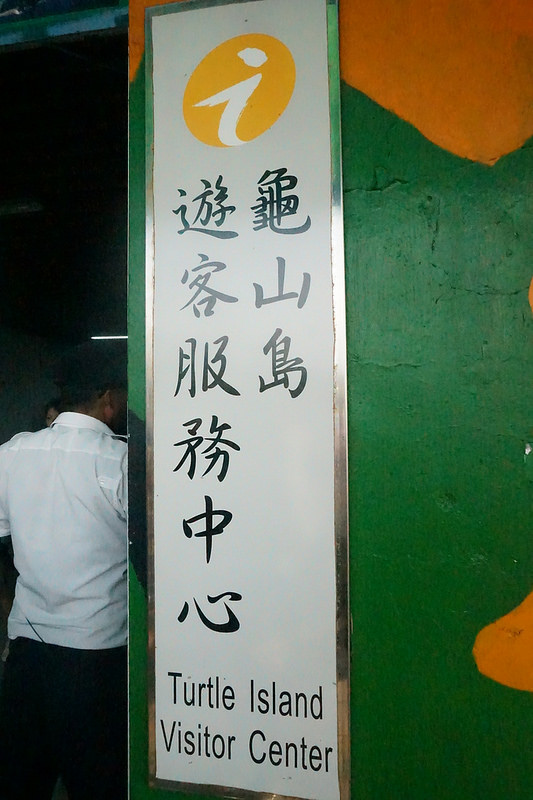 龜山島
遊客服務中心
Turtle Island
Visitor Center